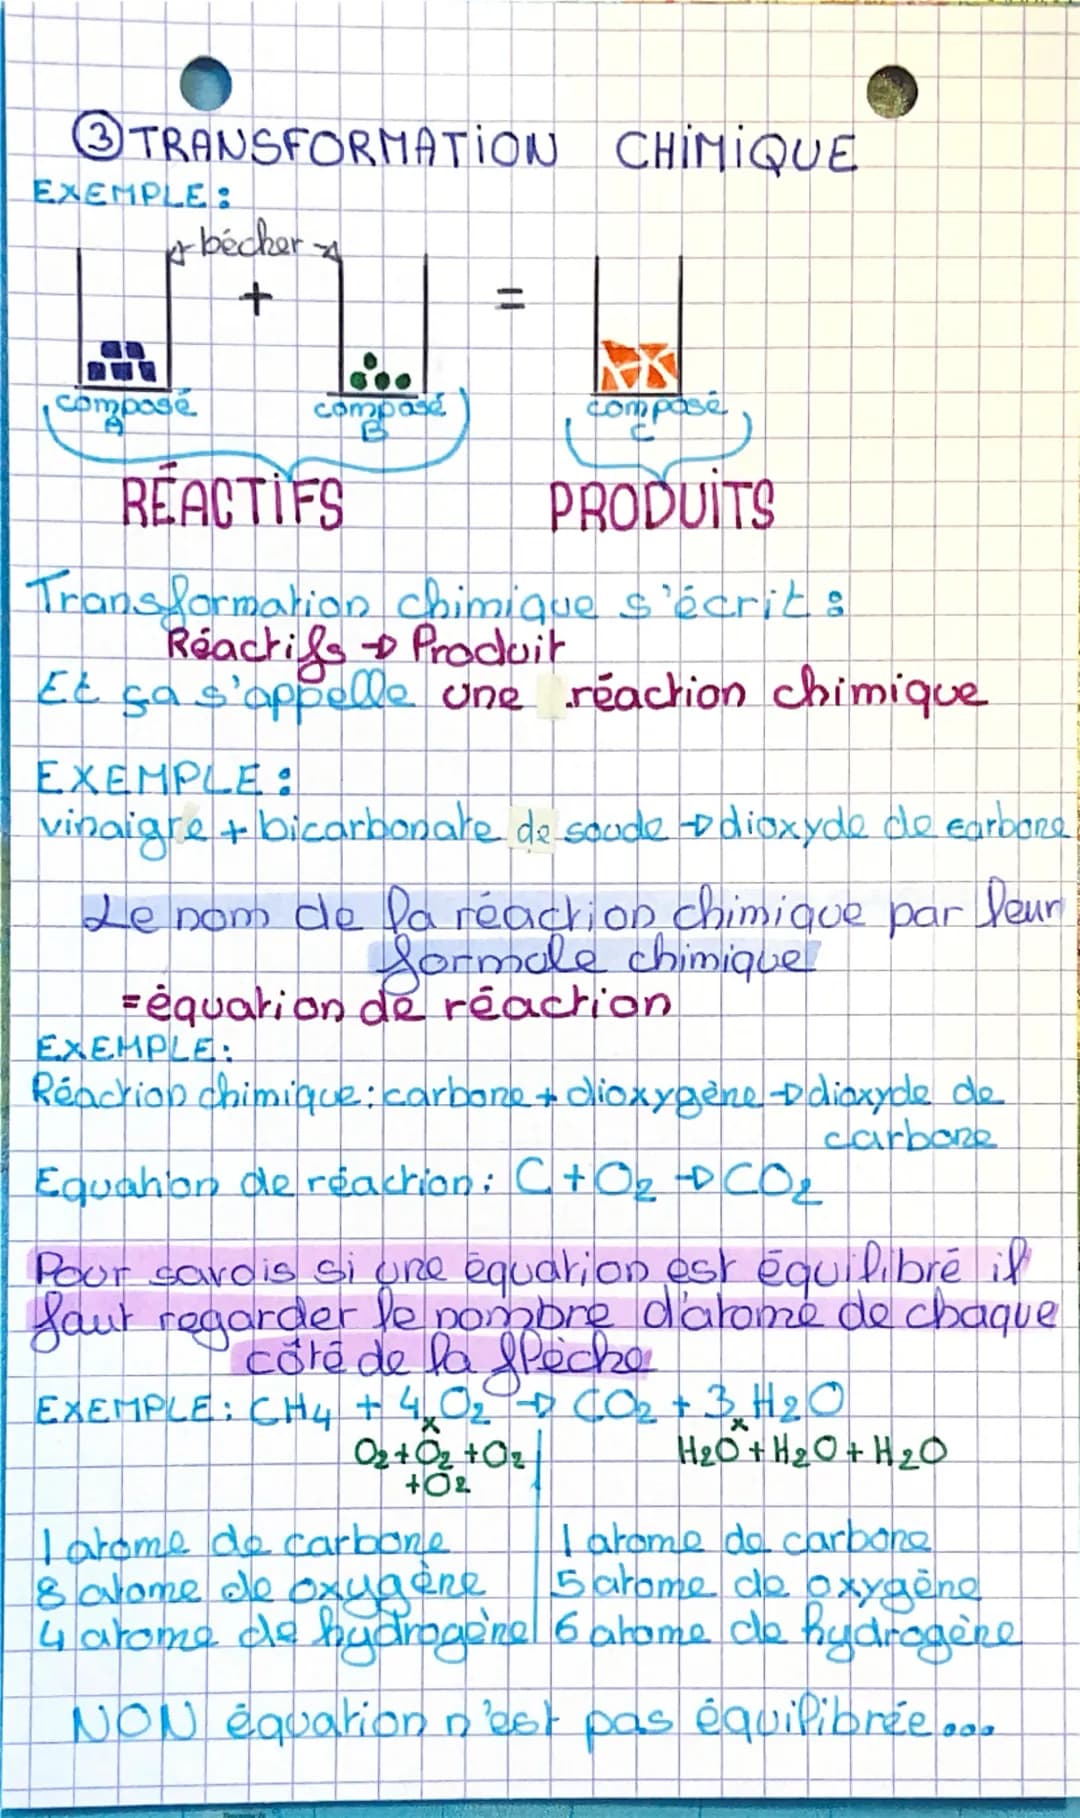 ③ TRANSFORMATION CHIMIQUE
EXEMPLE:
bécher
+ =
composé A composé B composé C
RÉACTIFS PRODUITS
Transformation chimique s'écrit :
Réactifs → Produit
Et ça s'appelle une réaction chimique
EXEMPLE :
vinaigre + bicarbonate de soude → dioxyde de carbone
Le nom de la réaction chimique par leur
formule chimique
= équation de réaction
EXEMPLE:
Réaction chimique: carbone + dioxygène → dioxyde de
carbone
Equation de réaction: C + O₂ → CO₂
Pour savois si une équation est équilibré il
faut regarder le nombre d'atome de chaque
côté de la flèche
EXEMPLE: CH₄ + 4 x O₂ → CO₂ + 3 x H₂O
O₂ + O₂ + O₂ H₂O + H₂O + H₂O
+ O₂
1 atome de carbone 1 atome de carbone
8 atome de oxygène 5 atome de oxygène
4 atome de hydrogène 6 atome de hydrogène
NON équation n'est pas équilibrée...